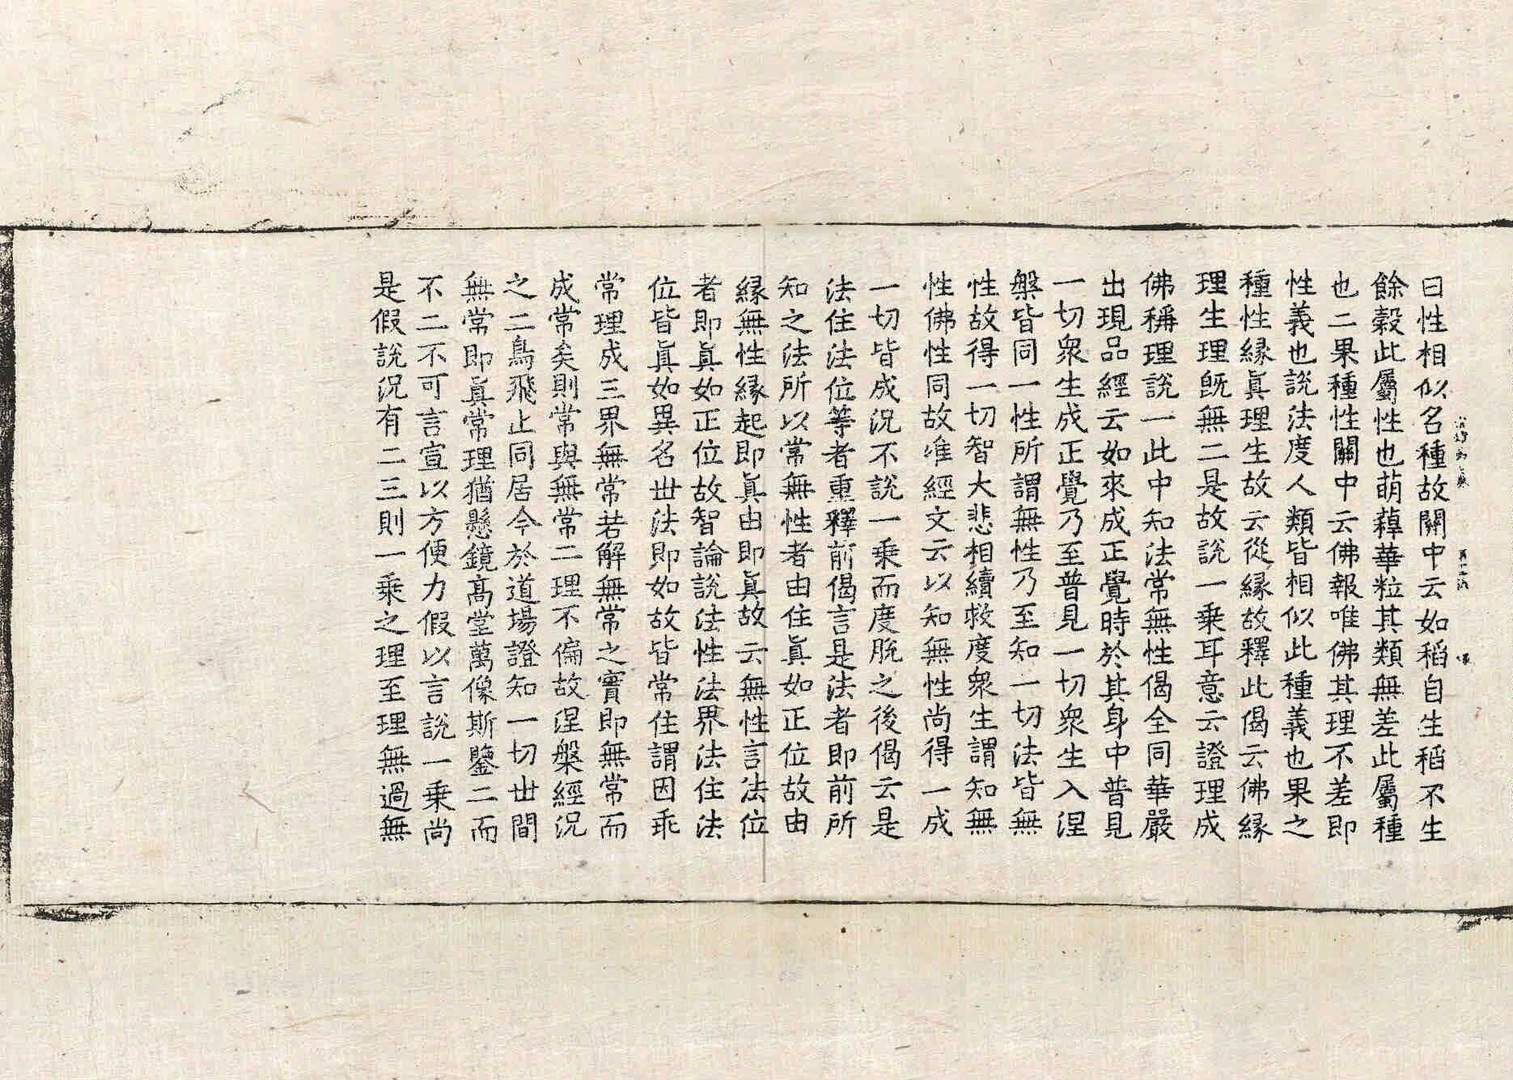 曰性相似名種故關中云如稻自生稻不生
餘穀此屬性也萌薭華粒其類無差此屬種
也二果種性關中云佛報唯佛其理不差即
性義也說法度人類皆相似此種義也果之
種性緣眞理生故云從緣故釋此偈云佛緣
理生理旣無二是故說一乘耳意云證理成
佛稱理說一此中知法常無性偈全同華嚴
出現品經云如來成正覺時於其身中普見
一切衆生成正覺乃至普見一切衆生入涅
槃皆同一性所謂無性乃至知一切法皆無
性故得一切智大悲相續救度衆生謂知無
性佛性同故準經文云以知無性尚得一成
一切皆成況不說一乘而度脫之後偈云是
法住法位等者重釋前偈言是法者即前所
知之法所以常無性者由住眞如正位故由
緣無性緣起即眞由即眞故云無性言法位
者即眞如正位故智論說法性法界法住法
位皆眞如異名世法即如故皆常住謂因乖
常理成三界無常若解無常之實即無常而
成常矣則常與無常二理不偏故涅槃經況
之二鳥飛止同居今於道場證知一切世間
無常即眞常理猶懸鏡高堂萬像斯鑒二而
不二不可言宣以方便力假以言說一乘尚
是假說況有二三則一乘之理至理無過無